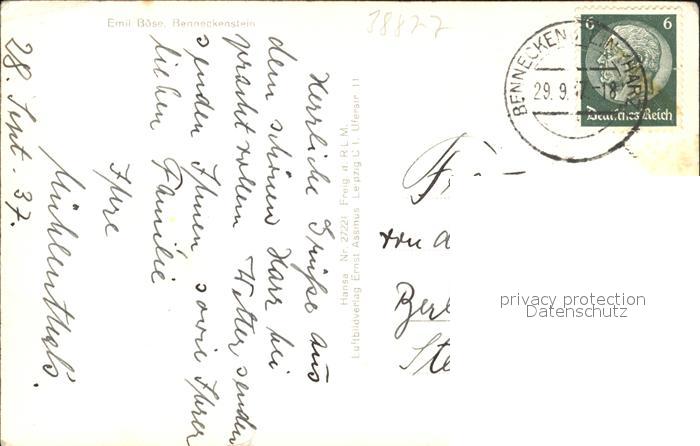 Emil Böse, Benneckenstein
38822
28. Sept. 37.
Herrliche Grüße aus
dem schönen Harz bei
prachtvollem Wetter senden
senden Ihnen sowie Ihrer
lieben Familie
Ihre
Mühlenthals.
Hansa Nr. 27221 Freig. d. R.L.M.
Luftbildverlag Ernst Assmus Leipzig C 1, Uferstr. 11
6 6
Deutsches Reich
29. 9. 37 -18
Berl
privacy protection
Datenschutz